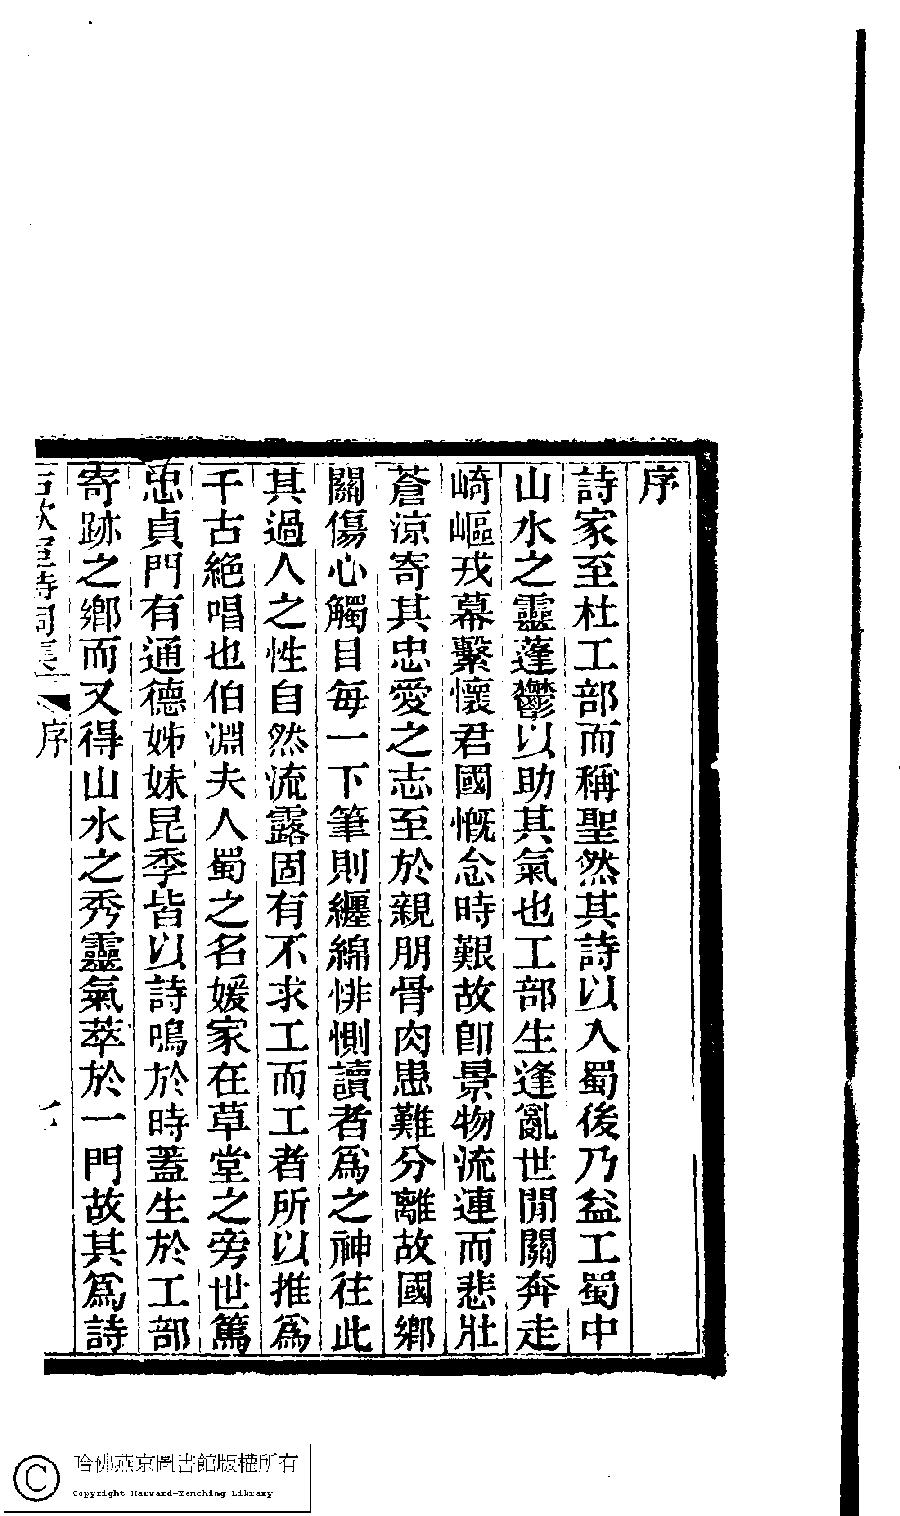 序
詩家至杜工部而稱聖然其詩以入蜀後乃益工蜀中
山水之靈蓬鬱以助其氣也工部生逢亂世閒關奔走
崎嶇戎幕繫懷君國慨念時艱故卽景物流連而悲壯
蒼涼寄其忠愛之志至於親朋骨肉患難分離故國鄉
關傷心觸目每一下筆則纒綿悱惻讀者爲之神往此
其過人之性自然流露固有不求工而工者所以推爲
千古絕唱也伯淵夫人蜀之名媛家在草堂之旁世篤
忠貞門有通德姊妹昆季皆以詩鳴於時蓋生於工部
寄跡之鄉而又得山水之秀靈氣萃於一門故其爲詩
序
哈佛燕京圖書館版權所有
Copyright Harvard-Yenching Library